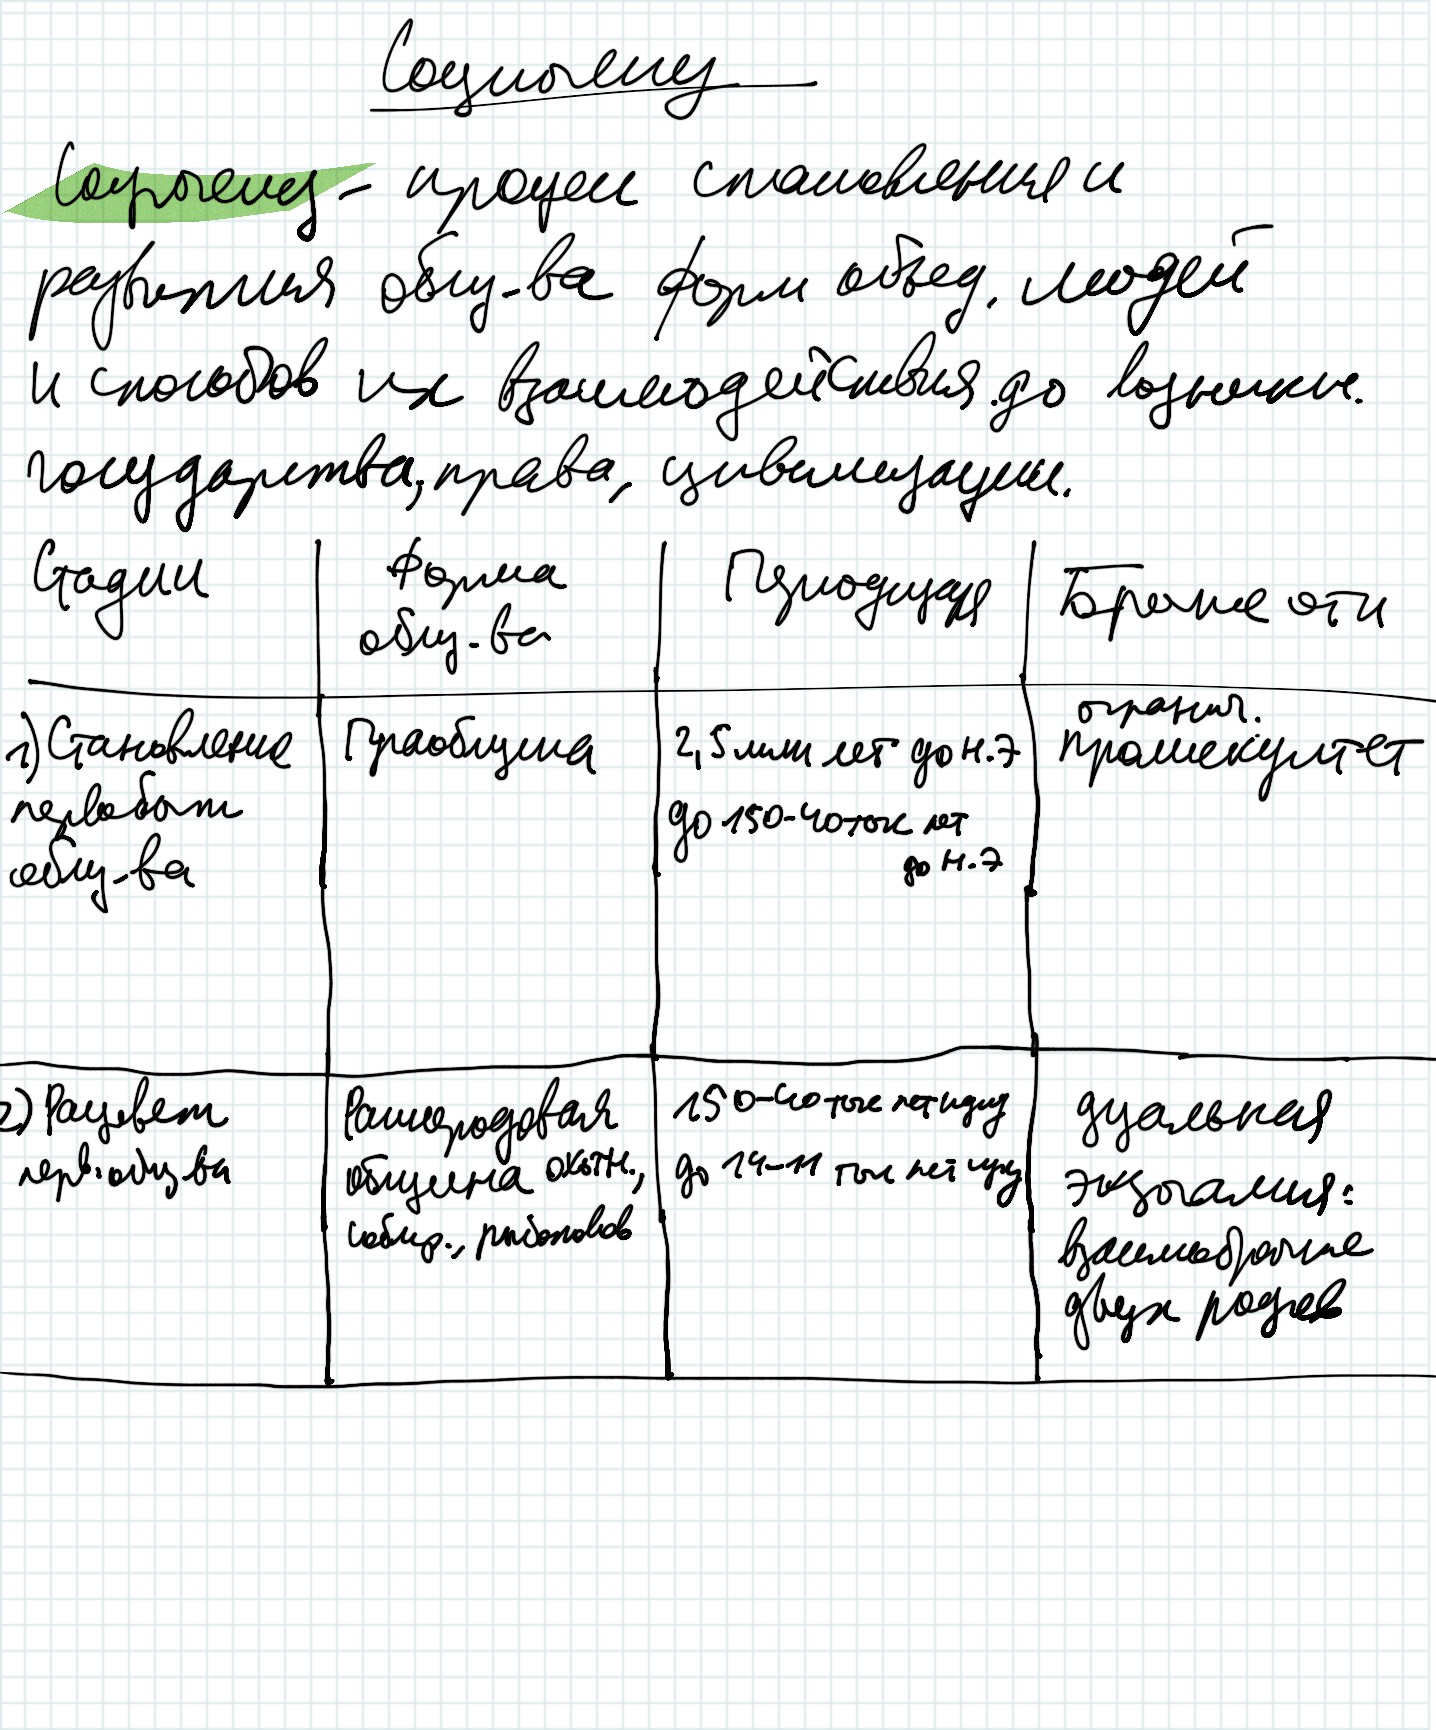 Социогенез
Социогенез - процесс становления и
развития общ-ва форм объед. людей
и способов их взаимодействия до возникн.
государства, права, цивилизации.
Стадии Форма общ-ва Периодизация Брачные отн
1) Становление
первобыт
общ-ва
Праобщина
2,5 млн лет до н.э
до 150-40 тыс лет
до н.э
огранич.
промискуитет
2) Расцвет
перв. общ-ва
Раннеродовая
община охотн.,
собир., рыболовов
150-40 тыс лет назад
до 14-11 тыс лет назад
дуальная
экзогамия:
взаимобрачие
двух родов